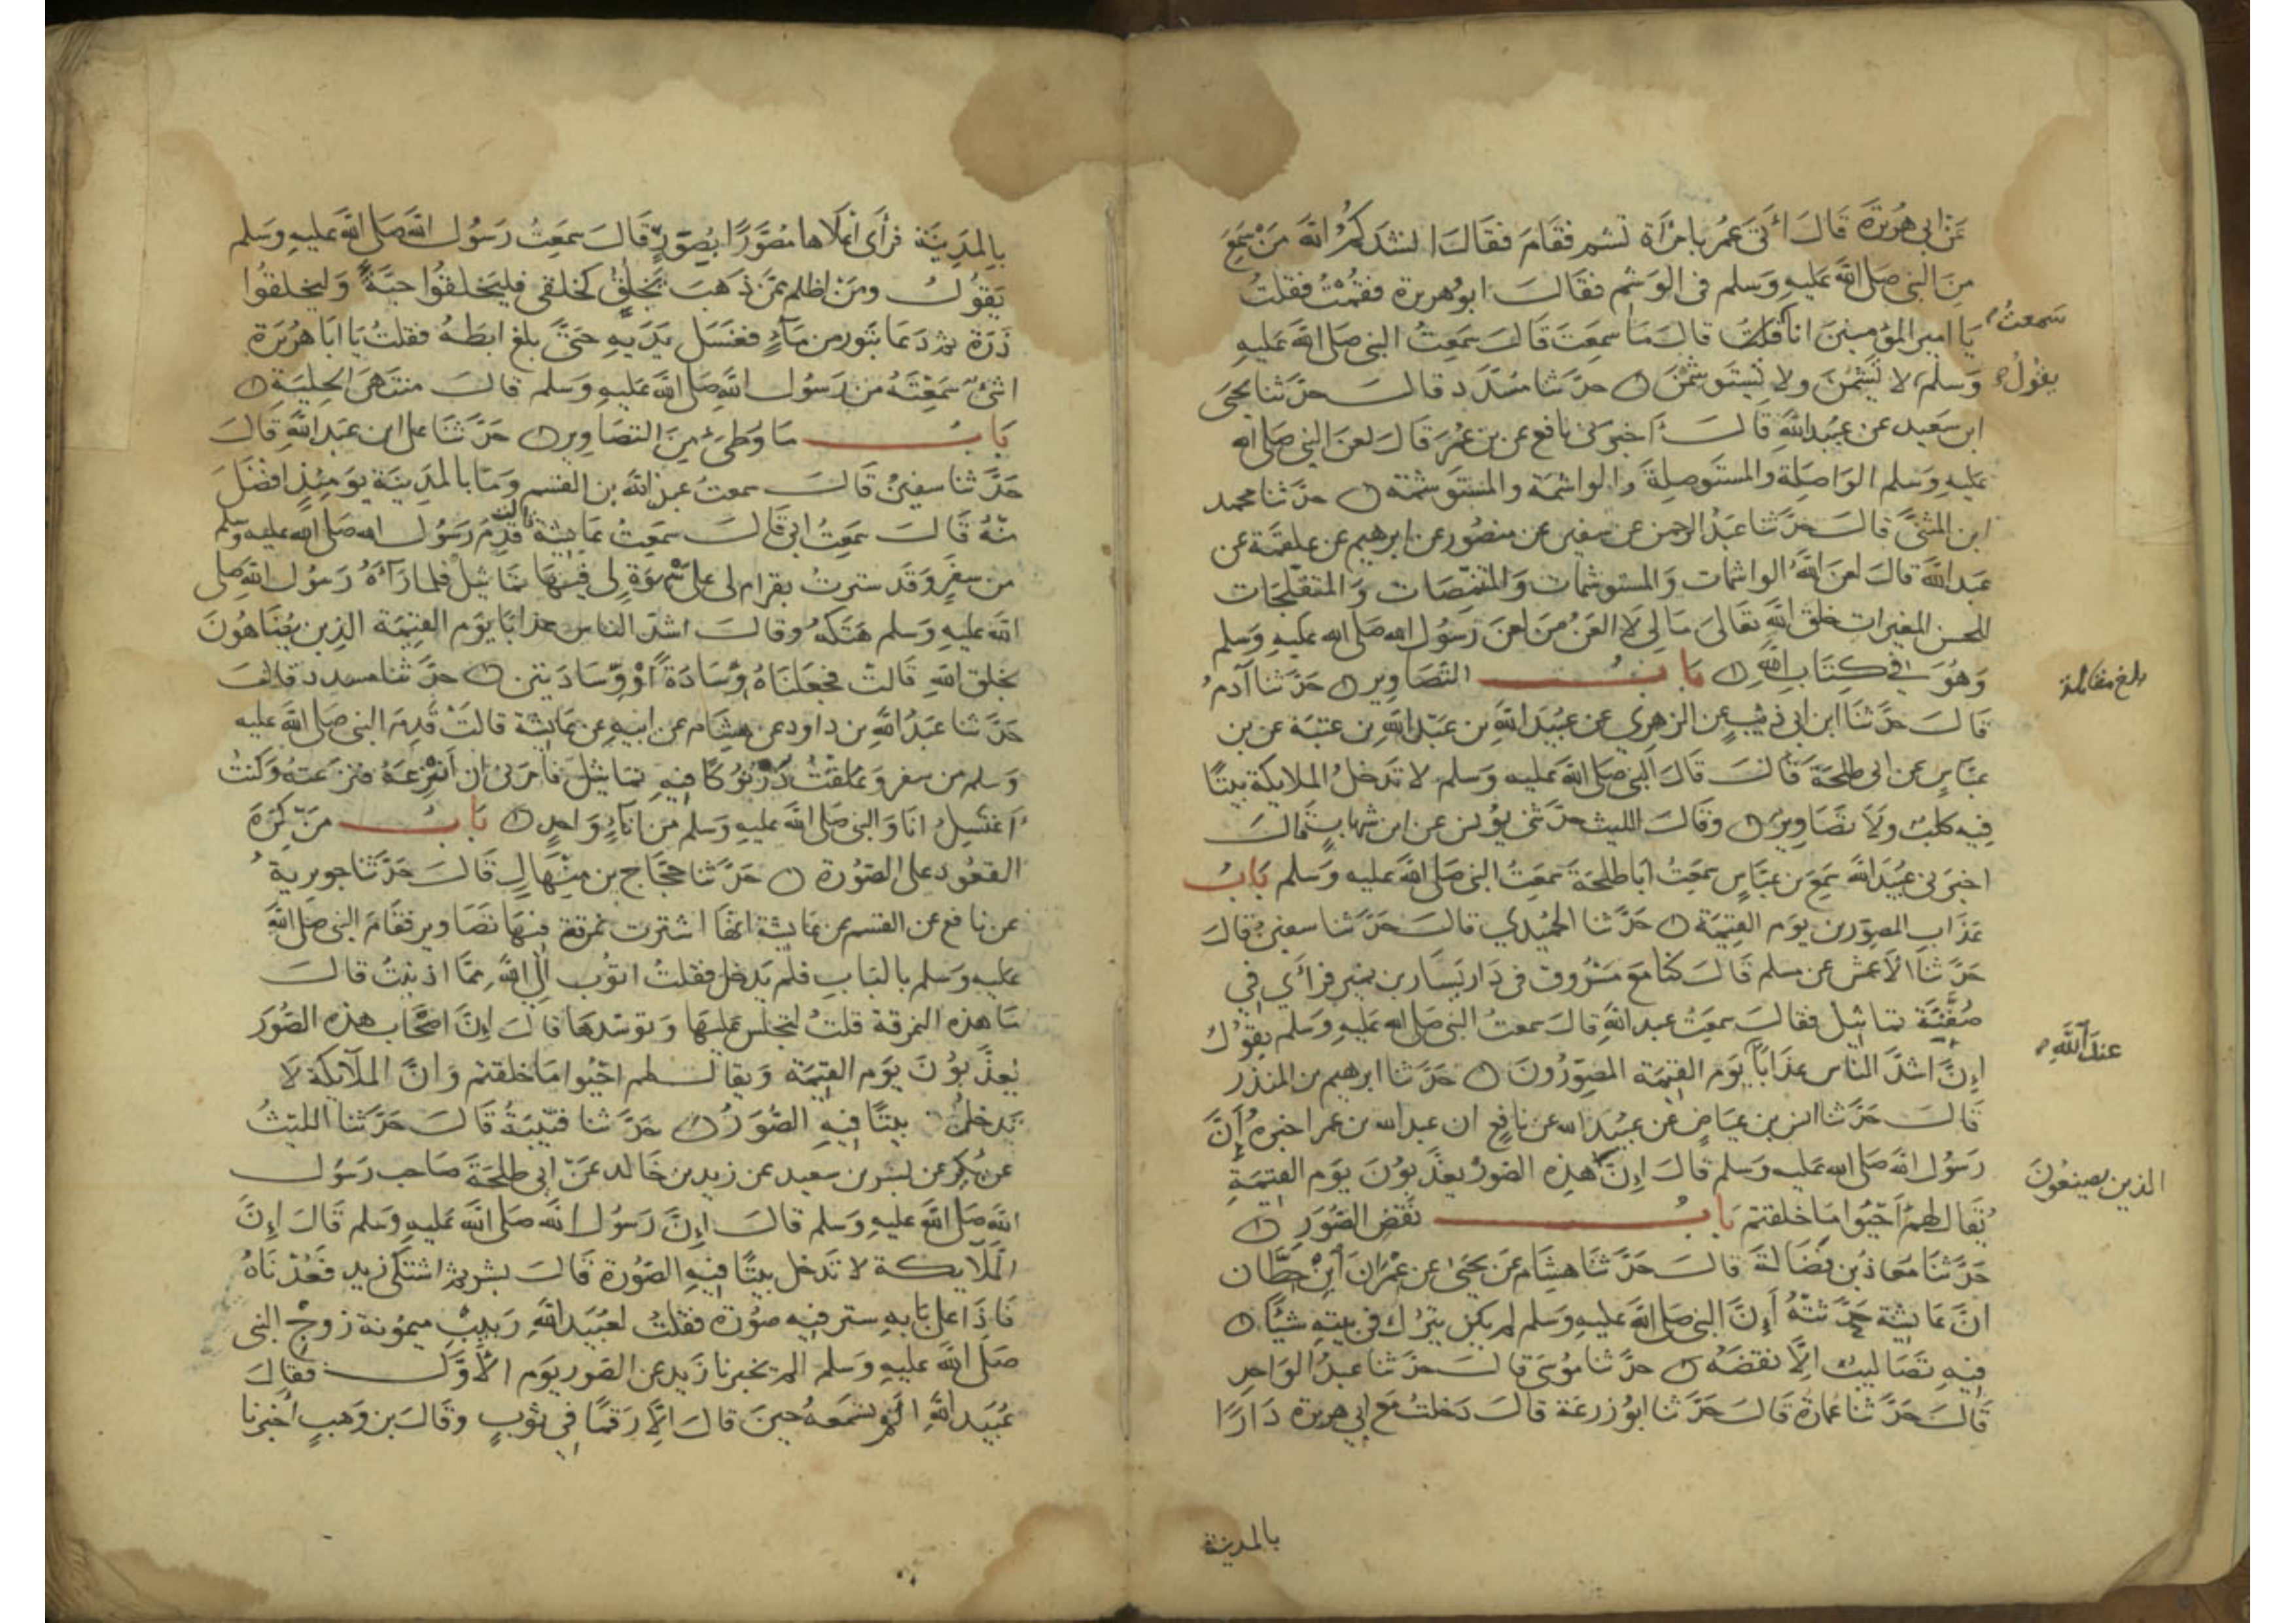 عَن ابي هُرَيرَةَ قَالَ اُتيَ عُمَرُ بامرَأة تشم فقَامَ فقَالَ انشدكُمُ اللهَ مَنْ سَمِعَ
مِنَ النبي صَلى اللهُ عَليهِ وَسَلم في الوَشم فقَالَ ابُو هُريرة فقمْتُ فقلتُ
يَا امير المؤمنينَ انا سمعتُ قالَ مَا سمعتَ قَالَ سَمِعتُ النبي صَلى الله عَليهِ
وَسَلم يقُولُ لا تَشِمْنَ ولا تَستَوشِمْنَ حدَّثنا مُسَدَّد قالَ حدَّثنا يحيى
ابن سَعيد عن عُبيد اللهِ قَالَ اَخبرَني نافع عن بن عُمَرَ قَالَ لعَنَ النبي صَلى الله
عَليهِ وَسَلم الوَاصِلَة والمستَوصِلةَ والواشمَة والمستَوشمَة حدَّثنا محمد
ابن المثنَّى قالَ حدَّثنا عَبدُ الرحمن عن سفين عن منصُور عن ابرهيم عن علقمَة عن
عَبد اللهِ قالَ لعَنَ اللهُ الواشمات وَالمستوشمات وَالمتنمّصَات وَالمتفلّجَات
للحسن المغيرات خلقَ اللهِ تعَالى مَا لي لَا العَنُ مَن لعَنَ رَسُول الله صَلى الله عَليهِ وَسَلم
وَهُوَ في كِتَابِ اللهِ بَابُ التّصَاوير حَدَّثنا آدمُ
قَالَ حَدَّثنَا ابن ابي ذئبٍ عن الزهري عن عُبيد اللهِ بن عَبد اللهِ بن عتبَة عن بن
عبَّاسٍ عن ابي طلحَةَ قَالَ قَالَ النبي صَلى اللهُ عَليه وَسَلم لا تَدخلُ الملايكَة بيتًا
فيه كلبٌ ولَا تصَاوير وقَالَ الليث حدَّثني يُونس عن ابن شهابٍ قالَ
اخبرَني عُبيد اللهِ سَمِعَ بن عبَّاسٍ سَمِعتُ ابا طلحَة سَمِعتُ النبي صَلى الله عَليه وَسَلم بَابُ
عَذَاب المصوّرين يَوم القيمَة حَدَّثنا الحمَيدي قالَ حَدَّثنا سفينُ قَالَ
حَدَّثنَا الأعمش عن مسلم قَالَ كنَّا مَعَ مَسْرُوق في دَار يَسَار بن نمير فرَأى في
صُفّته تماثيل فقالَ سَمِعتُ عبد اللهِ قالَ سمعتُ النبي صَلى الله عَليهِ وَسَلم يقُولُ
اِنَّ اشدَّ الناس عَذَاباً عندَ اللهِ يَومَ القيمَة المصَوِّرُونَ حَدَّثنا ابرهيم بن المنذر
قَالَ حَدَّثنا انس بن عيَاضٍ عن عُبيد الله عن نافعٍ ان عبد الله بن عمر اخبرهُ أَنَّ
رَسُول الله صَلى الله عَليه وَسَلم قالَ اِنَّ الذين يصنعُونَ هذه الصُّوَر يعذَّبُونَ يَومَ القيمَةِ
يُقَال لهمْ أَحْيُوا مَا خَلقتم بَابُ نقض الصُّوَرِ
حَدَّثنَا مُعَاذ بن فضَالَةَ قَالَ حَدَّثنا هِشَام عَن يحيى عن عِمْرَانَ ابْن حِطَّان
انَّ عَايشَة حَدَّثتهُ أَنَّ النبي صَلى اللهُ عَليهِ وَسَلم لم يكن يترُك في بيته شيئًا
فيهِ تصَاليبُ اِلَّا نقضَهُ حَدَّثنا مُوسَى قالَ حَدَّثنا عبدُ الوَاحد
قَالَ حَدَّثنا عمَارة قَالَ حَدَّثنا ابُو زرعَة قالَ دَخلتُ مَع ابي هريرة دَارًا
سَمعتُ
يقُولُ
بلغ مقابلة
عندَ اللهِ
الذين يصنعُونَ
بالمدينة
بالمَدِينَة فرَأى اعْلَاها مُصَوَّرًا يُصَوّر قَالَ سَمِعتُ رَسُول الله صَلى الله عَليهِ وَسَلم
يَقُولُ ومَنْ اظلم ممَّن ذهَبَ يَخلقُ كَخلقي فليَخلقُوا حبَّةً وَليخلقُوا
ذَرَّة ثم دَعَا بتَور من مَآءٍ فغسَل يَدَيهِ حَتَّى بلغ ابطَهُ فقلتُ يَا ابَا هُرَيرَة
اشَيءٌ سَمِعْتَهُ من رَسُول اللهِ صَلى اللهُ عَليهِ وَسَلم قالَ منتَهَى الحِليَة
بَابُ مَا وُطئَ مِنَ التصَاوير حَدَّثنَا علي ابن عَبد اللهِ قَالَ
حَدَّثنا سفينُ قَالَ سمعتُ عبد الرحمن بن القسم وَمَا بالمدِينَة يَومَئذٍ افضَلَ
منهُ قَالَ سَمِعتُ ابي قَالَ سَمِعتُ عَايشَة قالت قَدِمَ رَسُول الله صَلى الله عليه وسلم
من سفرٍ وَقَد سترتُ بقرام لي على سَهْوَةٍ لي فيهَا تمَاثيل فلما رَآهُ رَسُول اللهِ صَلى
الله عَليهِ وَسَلم هَتكَهُ وقالَ اشدّ الناس عذابًا يَوم القيمَة الذين يضَاهُونَ
بخلق اللهِ قَالت فجَعَلنَاهُ وسَادَةً أَوْ وِسَادَتين حدَّثنا مسدد قالَ
حَدَّثنا عَبدُ اللهِ بن داود عن هِشَام عن ابيهِ عن عَايشَة قالَتْ قَدِمَ النبي صَلى الله عَليه
وَسَلم من سفر وَعَلقتُ دُرْنُوكًا فيهِ تمَاثيلَ فأمَرَني ان اَنزِعَهُ فنزعتهُ وَكنتُ
أَغتسِلُ انَا وَالنبي صَلى اللهُ عَليه وَسَلم من انَاءٍ وَاحدٍ بَابُ مَن كَرِهَ
القعُود على الصُّورة حَدَّثنا حَجَّاج بن مِنْهَالٍ قَالَ حَدَّثنا جويريةُ
عن نافع عن القسم عن عَايشَة انهَا اشترت نمرقة فيهَا تصَاوير فقَامَ النبي صَلى الله
عَليهِ وَسَلم بالبَابِ فلم يَدخل فقلتُ اتُوب اِلى اللهِ ممّا اذنبتُ قالَ
مَا هذه النمرقة قلتُ لتجلسَ عَليهَا وَتوسّدهَا قَالَ اِنَّ اصْحَابَ هذه الصُّوَر
يُعذّبوُنَ يَوم القيمَة وَيقالُ لهم احْيُوا مَا خلقتم وَانَّ الملآيكَة لا
تدخلُ بيتًا فيهِ الصُّوَرُ حَدَّثنا قتيبَةُ قَالَ حَدَّثنا الليثُ
عن بُكيرٍ عن بُسْر بن سعيد عن زيد بن خَالد عَن ابي طلحَةَ صَاحب رَسُول
الله صَلى اللهُ عَليهِ وَسَلم قالَ اِنَّ رَسُول الله صَلى اللهُ عَليهِ وَسَلم قَالَ اِنَّ
المَلَايكة لا تَدخل بيتًا فيهِ الصُّورَة قَالَ بسر ثم اشتكى زيد فَعُدْنَاهُ
فَاِذَا على بَابهِ ستر فيه صُورَة فقلتُ لعُبيد اللهِ رَبيبِ ميمُونة زَوجِ النبي
صَلى اللهُ عَليهِ وَسَلم الم يخبرنا زَيد عن الصُّور يَوم الأَوَّل فقالَ
عُبَيد اللهِ الم تسْمَعهُ حينَ قالَ اِلَّا رَقمًا في ثَوبٍ وقَالَ بن وَهبٍ اَخبرنا